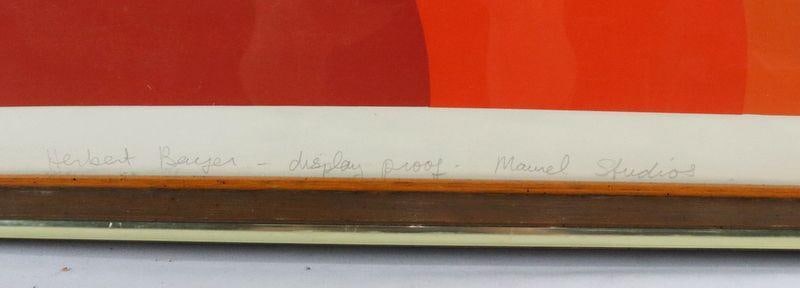 Herbert Bayer - display proof - Maurel Studios